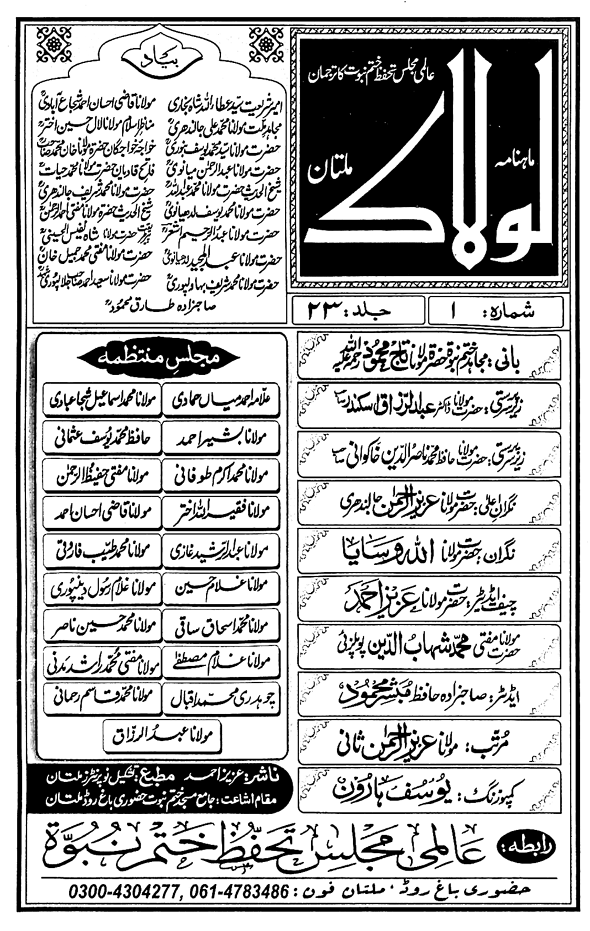 عالمی مجلس تحفظ ختم نبوت کا ترجمان
ماہنامہ
لولاک
ملتان
شمارہ: ۱
جلد: ۲۳
بیاد
امیر شریعت سید عطاء اللہ شاہ بخاریؒ
مولانا قاضی احسان احمد شجاع آبادیؒ
مجاہد ملت مولانا محمد علی جالندھریؒ
مناظر اسلام مولانا لال حسین اخترؒ
حضرت مولانا سید محمد یوسف بنوریؒ
خواجہ خواجگان حضرت مولانا خان محمد صاحبؒ
حضرت مولانا عبدالرحمٰن میانویؒ
فاتح قادیان حضرت مولانا محمد حیاتؒ
شیخ الحدیث حضرت مولانا محمد عبداللہؒ
حضرت مولانا محمد شریف جالندھریؒ
حضرت مولانا محمد یوسف لدھیانویؒ
شیخ الحدیث حضرت مولانا مفتی احمد الرحمٰنؒ
حضرت مولانا عبدالرحیم اشعرؒ
حضرت مولانا شاہ نفیس الحسینیؒ
حضرت مولانا عبدالمجید لدھیانویؒ
حضرت مولانا مفتی محمد جمیل خانؒ
حضرت مولانا محمد شریف بہاولپوریؒ
حضرت مولانا سعید احمد صاحب جلالپوریؒ
صاحبزادہ طارق محمودؒ
بانی: مجاہد ختم نبوۃ حضرۃ مولانا تاج محمود رحمۃ اللہ علیہ
زیرسرپرستی: حضرت مولانا ڈاکٹر عبدالرزاق سکندر صاحب
زیرسرپرستی: حضرت مولانا حافظ محمد ناصر الدین خاکوانی صاحب
نگران اعلیٰ: حضرت مولانا عزیز الرحمٰن جالندھری
نگران: حضرت مولانا اللہ وسایا
چیف ایڈیٹر: حضرت مولانا عزیز احمد
حضرت مولانا مفتی محمد شہاب الدین پوپلزئی
ایڈیٹر: صاحبزادہ حافظ مبشر محمود
مرتب: مولانا عزیز الرحمٰن ثانی
کمپوزنگ: یوسف ہارون
مجلس منتظمہ
علامہ احمد میاں حمادی
مولانا محمد اسماعیل شجاعبادی
مولانا بشیر احمد
حافظ محمد یوسف عثمانی
مولانا محمد اکرم طوفانی
مولانا مفتی حفیظ الرحمٰن
مولانا فقیر اللہ اختر
مولانا قاضی احسان احمد
مولانا عبدالرشید غازی
مولانا محمد طیب فاروقی
مولانا غلام حسین
مولانا غلام رسول دینپوری
مولانا محمد اسحاق ساقی
مولانا محمد حسین ناصر
مولانا غلام مصطفےٰ
مولانا مفتی محمد راشد مدنی
چوہدری محمد اقبال
مولانا محمد قاسم رحمانی
مولانا عبدالرزاق
ناشر: عزیز احمد مطبع: تشکیل نو پرنٹرز ملتان
مقام اشاعت: جامع مسجد ختم نبوت حضوری باغ روڈ ملتان
رابطہ: عالمی مجلس تحفظ ختم نبوۃ
حضوری باغ روڈ، ملتان فون: 061-4783486, 0300-4304277